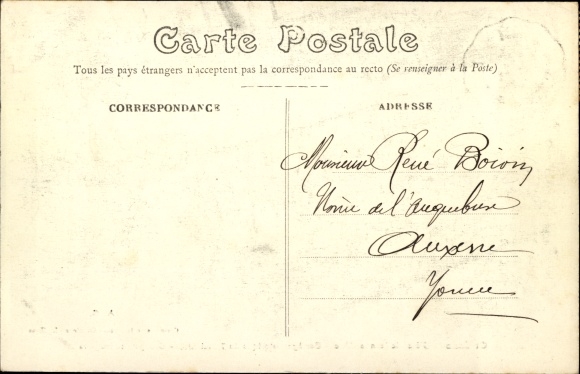 Carte Postale
Tous les pays étrangers n'acceptent pas la correspondance au recto (Se renseigner à la Poste)
CORRESPONDANCE
ADRESSE
Monsieur René Boivin
de l'arquebuse
Auxerre
Yonne